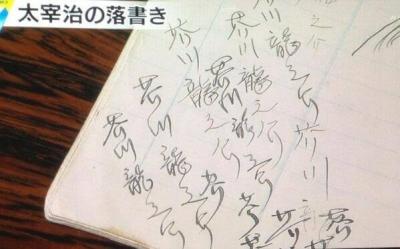 太宰治の落書き
之介
芥川龍之介
芥川龍之介
芥川龍之介
芥川龍之介
芥川龍之介
芥川
芥
芥川
芥川